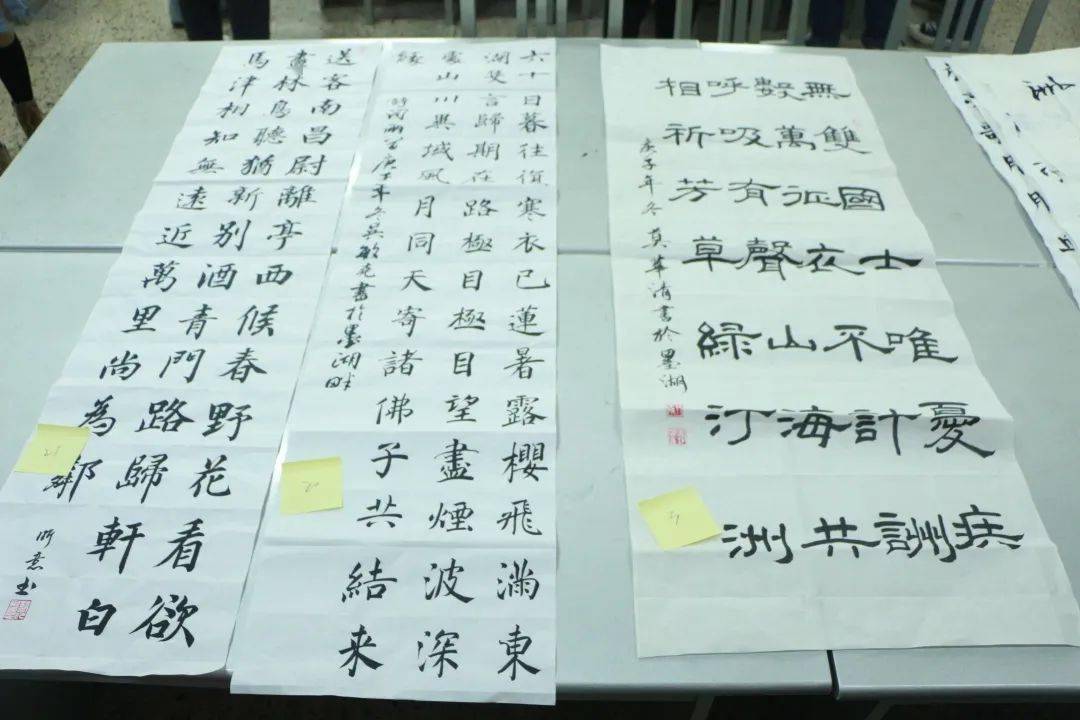 送客南昌尉離亭西候春野花看欲
盡林鳥聽猶新別酒青門路歸軒白
馬津相知無遠近萬里尚為鄰
書
六十日暮往復寒衣已蓮暑露櫻飛滿東
湖言歸期在路極目極目望盡煙波深
雲山川異域風月同天寄諸佛子共結来
緣
庚子年冬吴敏花書於墨湖畔
無雙國士唯憂疾
數萬征衣不計酬
呼吸有聲山海共
相祈芳草綠汀洲
庚子年冬莫華清書於墨湖